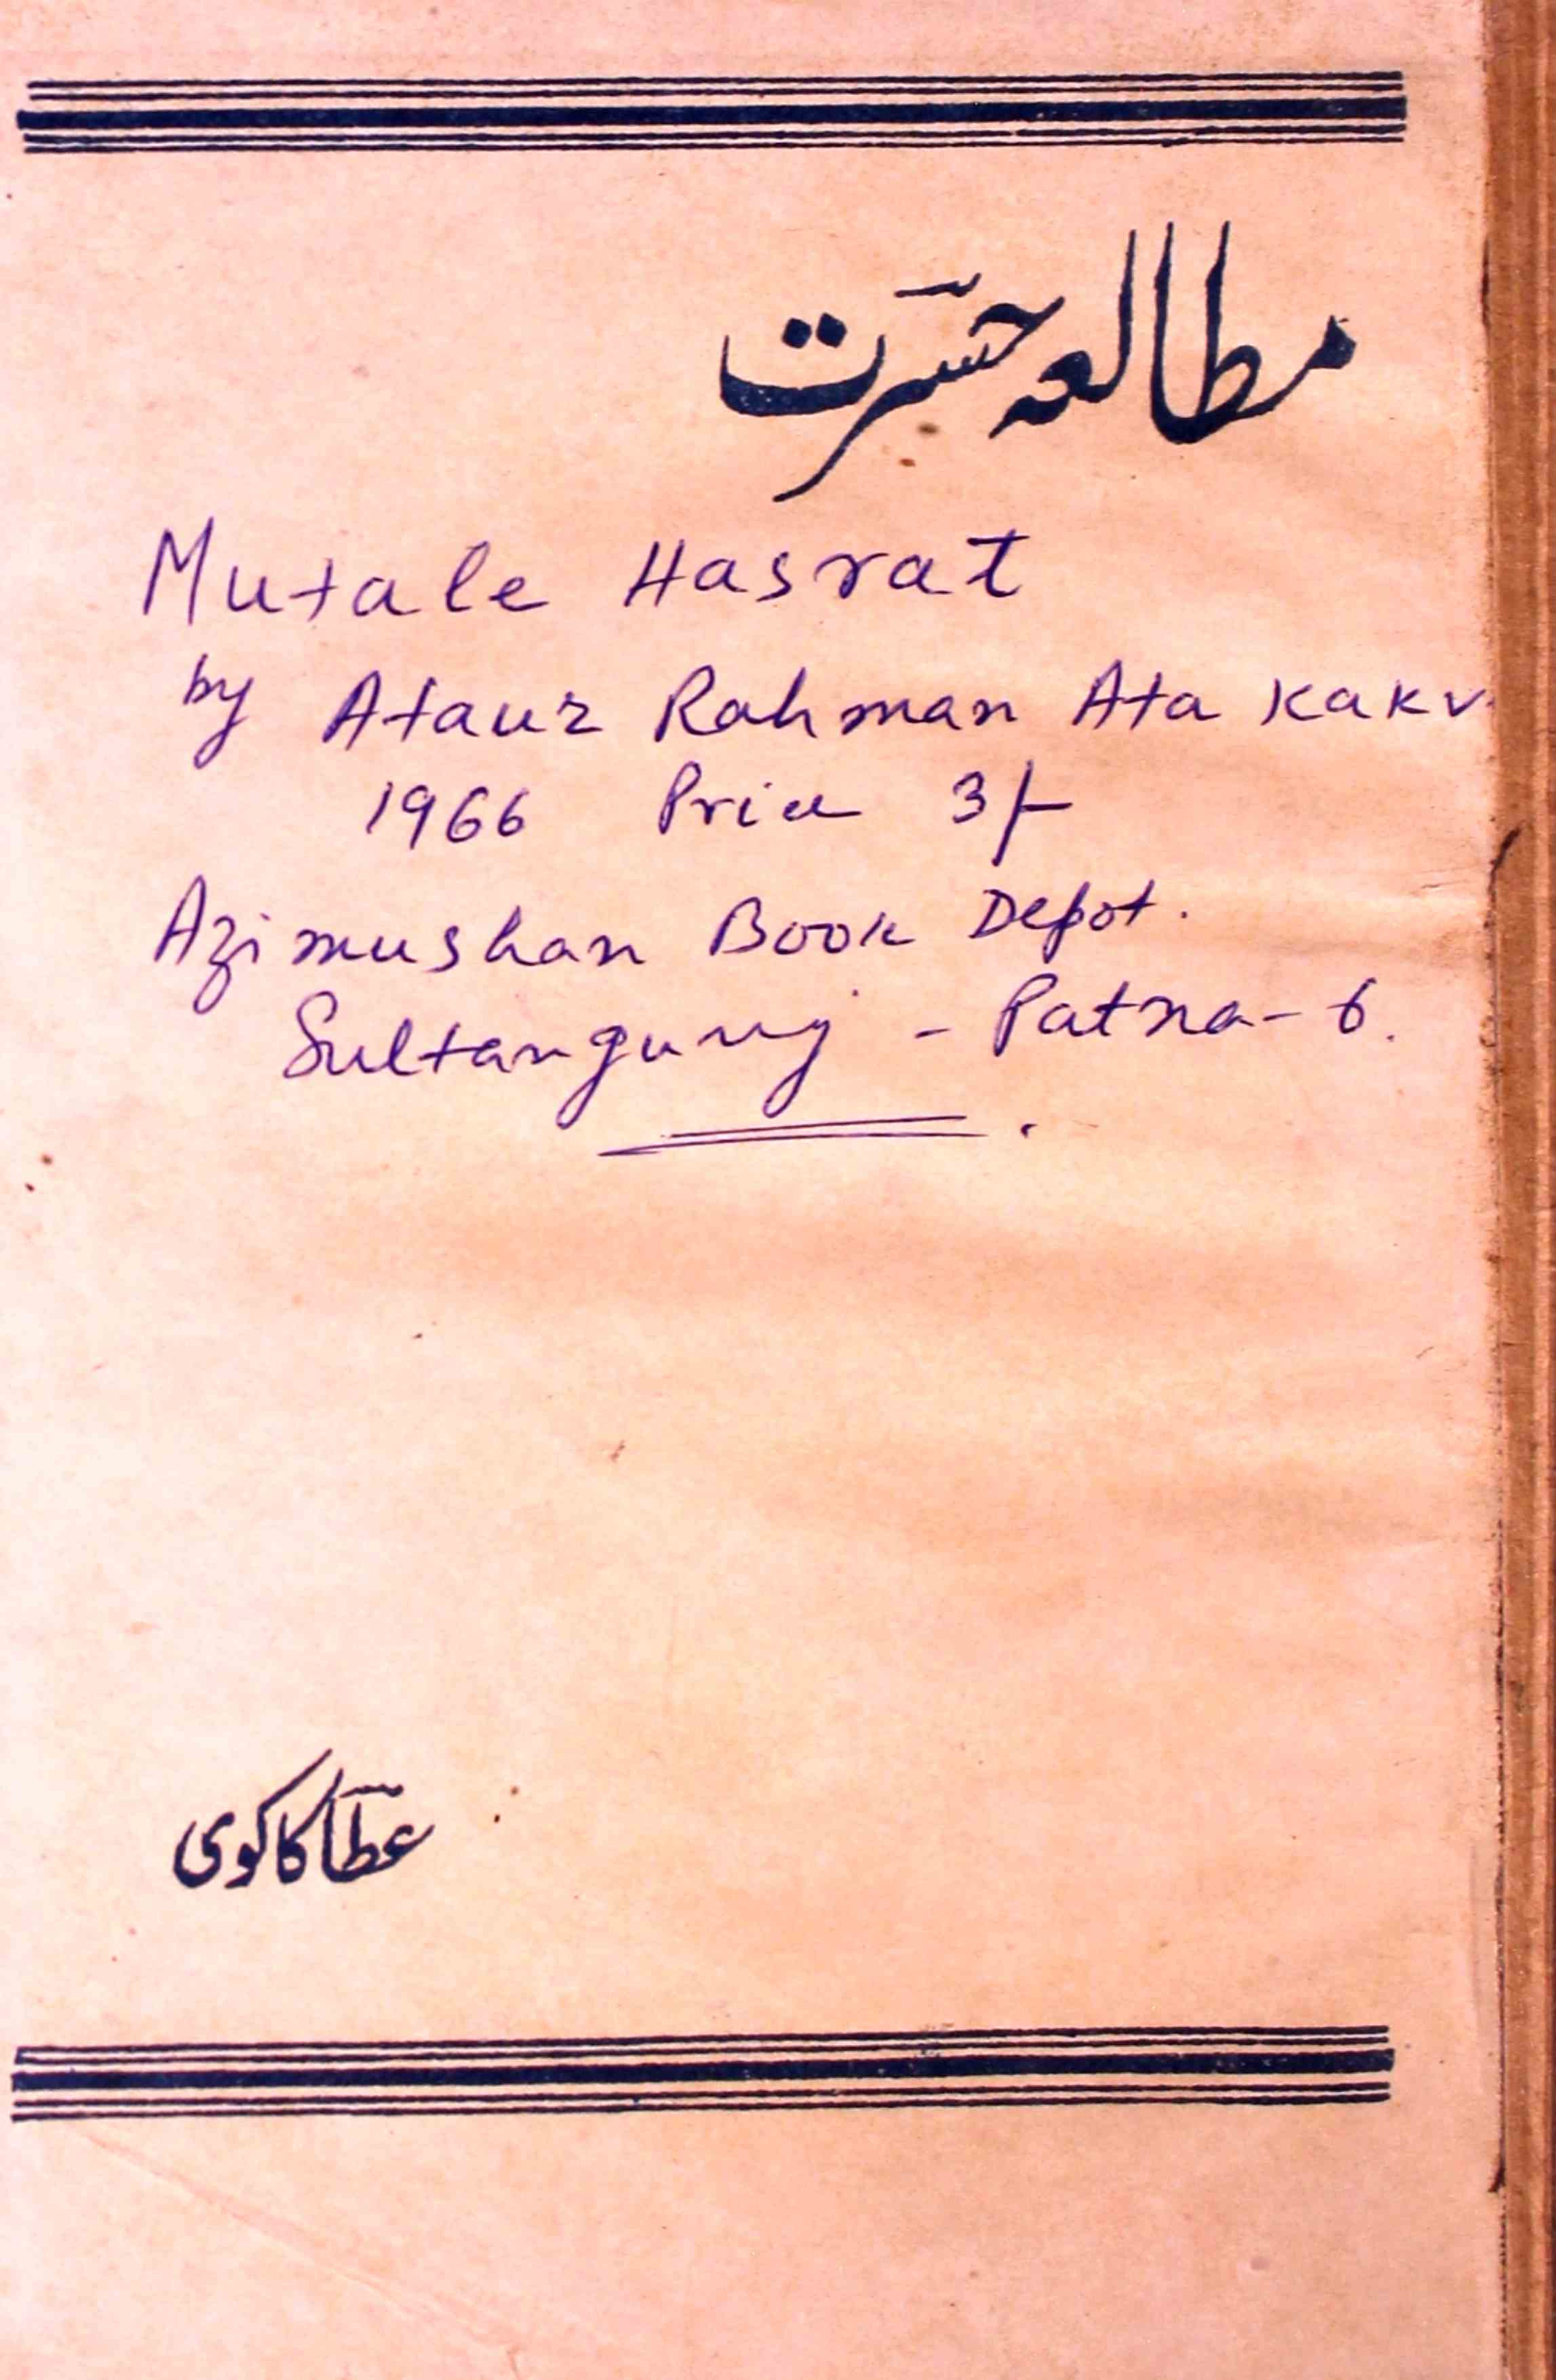 مطالعہ حسرت
Mutale Hasrat
by Ataur Rahman Ata Kakv
1966 Price 3/-
Azimushan Book Depot.
Sultangunj - Patna - 6.
عطا کاکوی